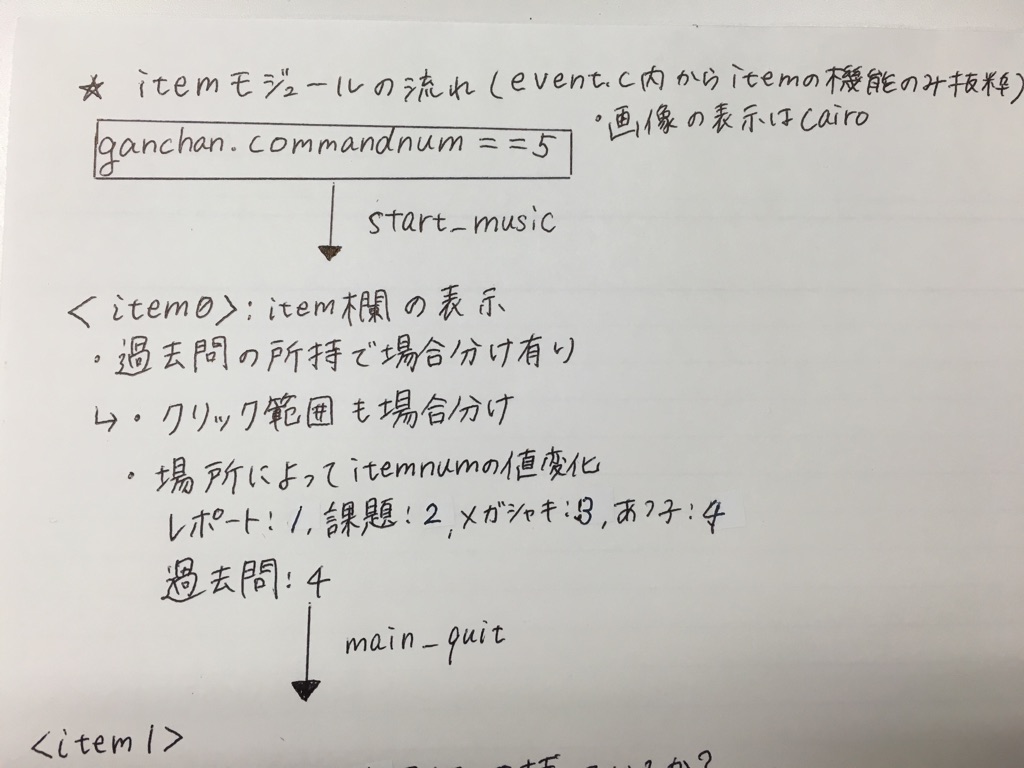 ☆ itemモジュールの流れ(event.c内からitemの機能のみ抜粋)
・画像の表示はcairo
ganchan.commandnum==5
start_music
<item0>:item欄の表示
・過去問の所持で場合分け有り
↳・クリック範囲も場合分け
・場所によってitemnumの値変化
レポート:1,課題:2,メガシャキ:3,あつ子:4
過去問:4
main_quit
<item1>